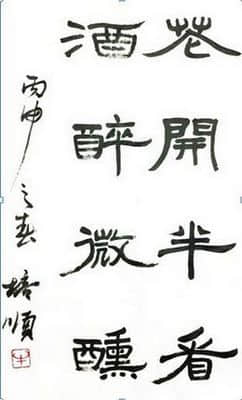 花開半看
酒醉微醺
丙申之春 培順